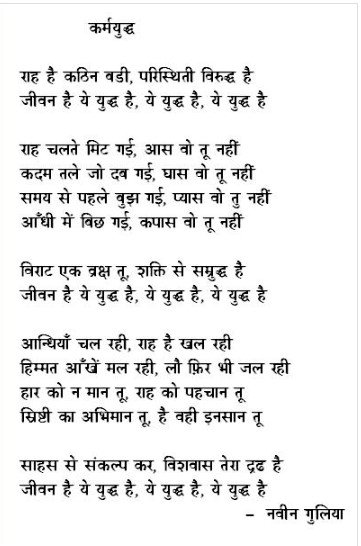 कर्मयुद्ध
राह है कठिन बडी, परिस्थिती विरुद्ध है
जीवन है ये युद्ध है, ये युद्ध है, ये युद्ध है
राह चलते मिट गई, आस वो तू नहीं
कदम तले जो दब गई, घास वो तू नहीं
समय से पहले बुझ गई, प्यास वो तु नहीं
आँधी में बिछ गई, कपास वो तू नहीं
विराट एक व्रक्ष तू, शक्ति से सम्रुद्ध है
जीवन है ये युद्ध है, ये युद्ध है, ये युद्ध है
आन्धियाँ चल रही, राह है खल रही
हिम्मत आँखें मल रही, लौ फ़िर भी जल रही
हार को न मान तू, राह को पहचान तू
स्रिष्टी का अभिमान तू, है वही इनसान तू
साहस से संकल्प कर, विशवास तेरा द्रढ है
जीवन है ये युद्ध है, ये युद्ध है, ये युद्ध है
- नवीन गुलिया